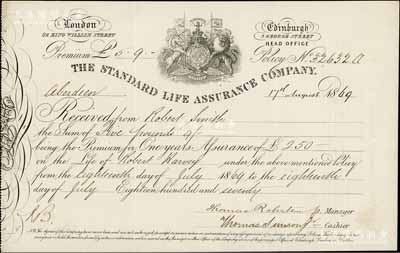 London
82 KING WILLIAM STREET
Edinburgh
3 GEORGE STREET
HEAD OFFICE
Premium £5.9.-
Policy No. 32632a
THE STANDARD LIFE ASSURANCE COMPANY.
Aberdeen 17th August 1869
Received from Robert Smith
the Sum of Five pounds 9/-
being the Premium for One years Assurance of £250-
on the Life of Robert Harvey under the above mentioned Policy
from the eighteenth day of July 1869 to the eighteenth
day of July Eighteen hundred and seventy
Thomas Robertson p. Manager
Thomas Simson Cashier